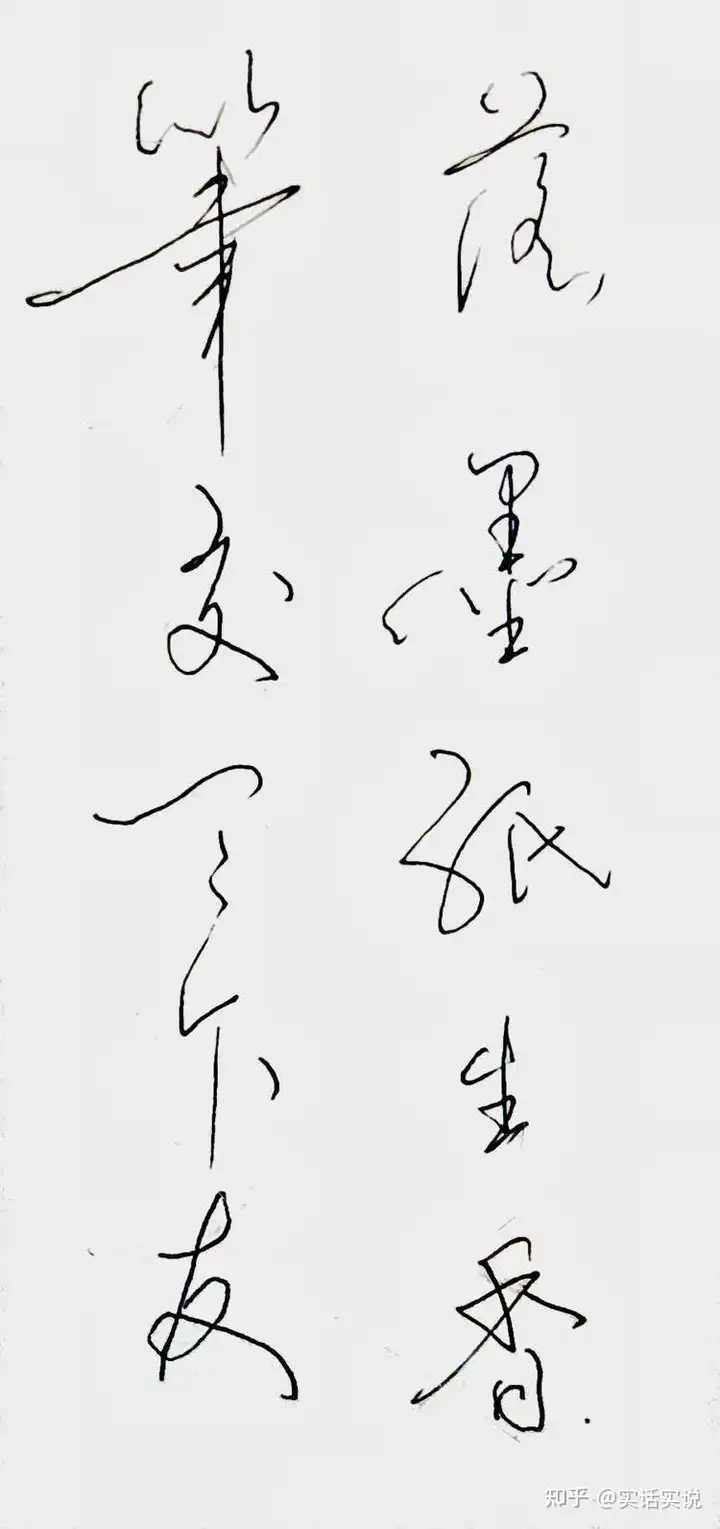 落墨紙生香
筆交天下友
知乎 @实话实说